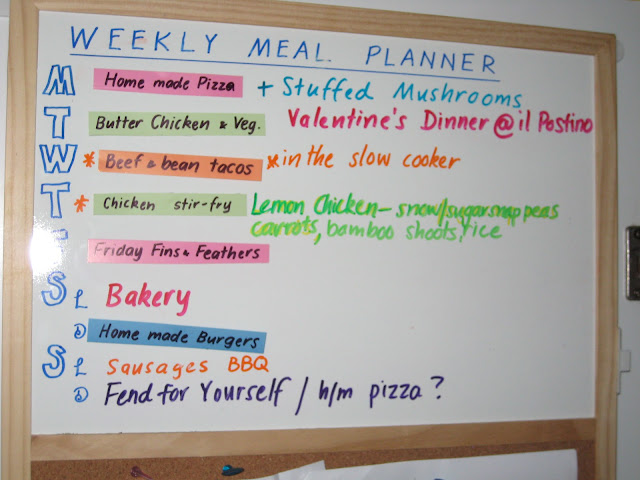 WEEKLY MEAL PLANNER
M Home made Pizza + Stuffed Mushrooms
T Butter Chicken & Veg. Valentine's Dinner @ il Postino
W * Beef & bean tacos * in the slow cooker
T * Chicken stir-fry Lemon Chicken - snow/sugarsnap peas
carrots, bamboo shoots, rice
Friday Fins & Feathers
S L Bakery
D Home made Burgers
S L Sausages BBQ
D Fend for Yourself / h/m pizza?